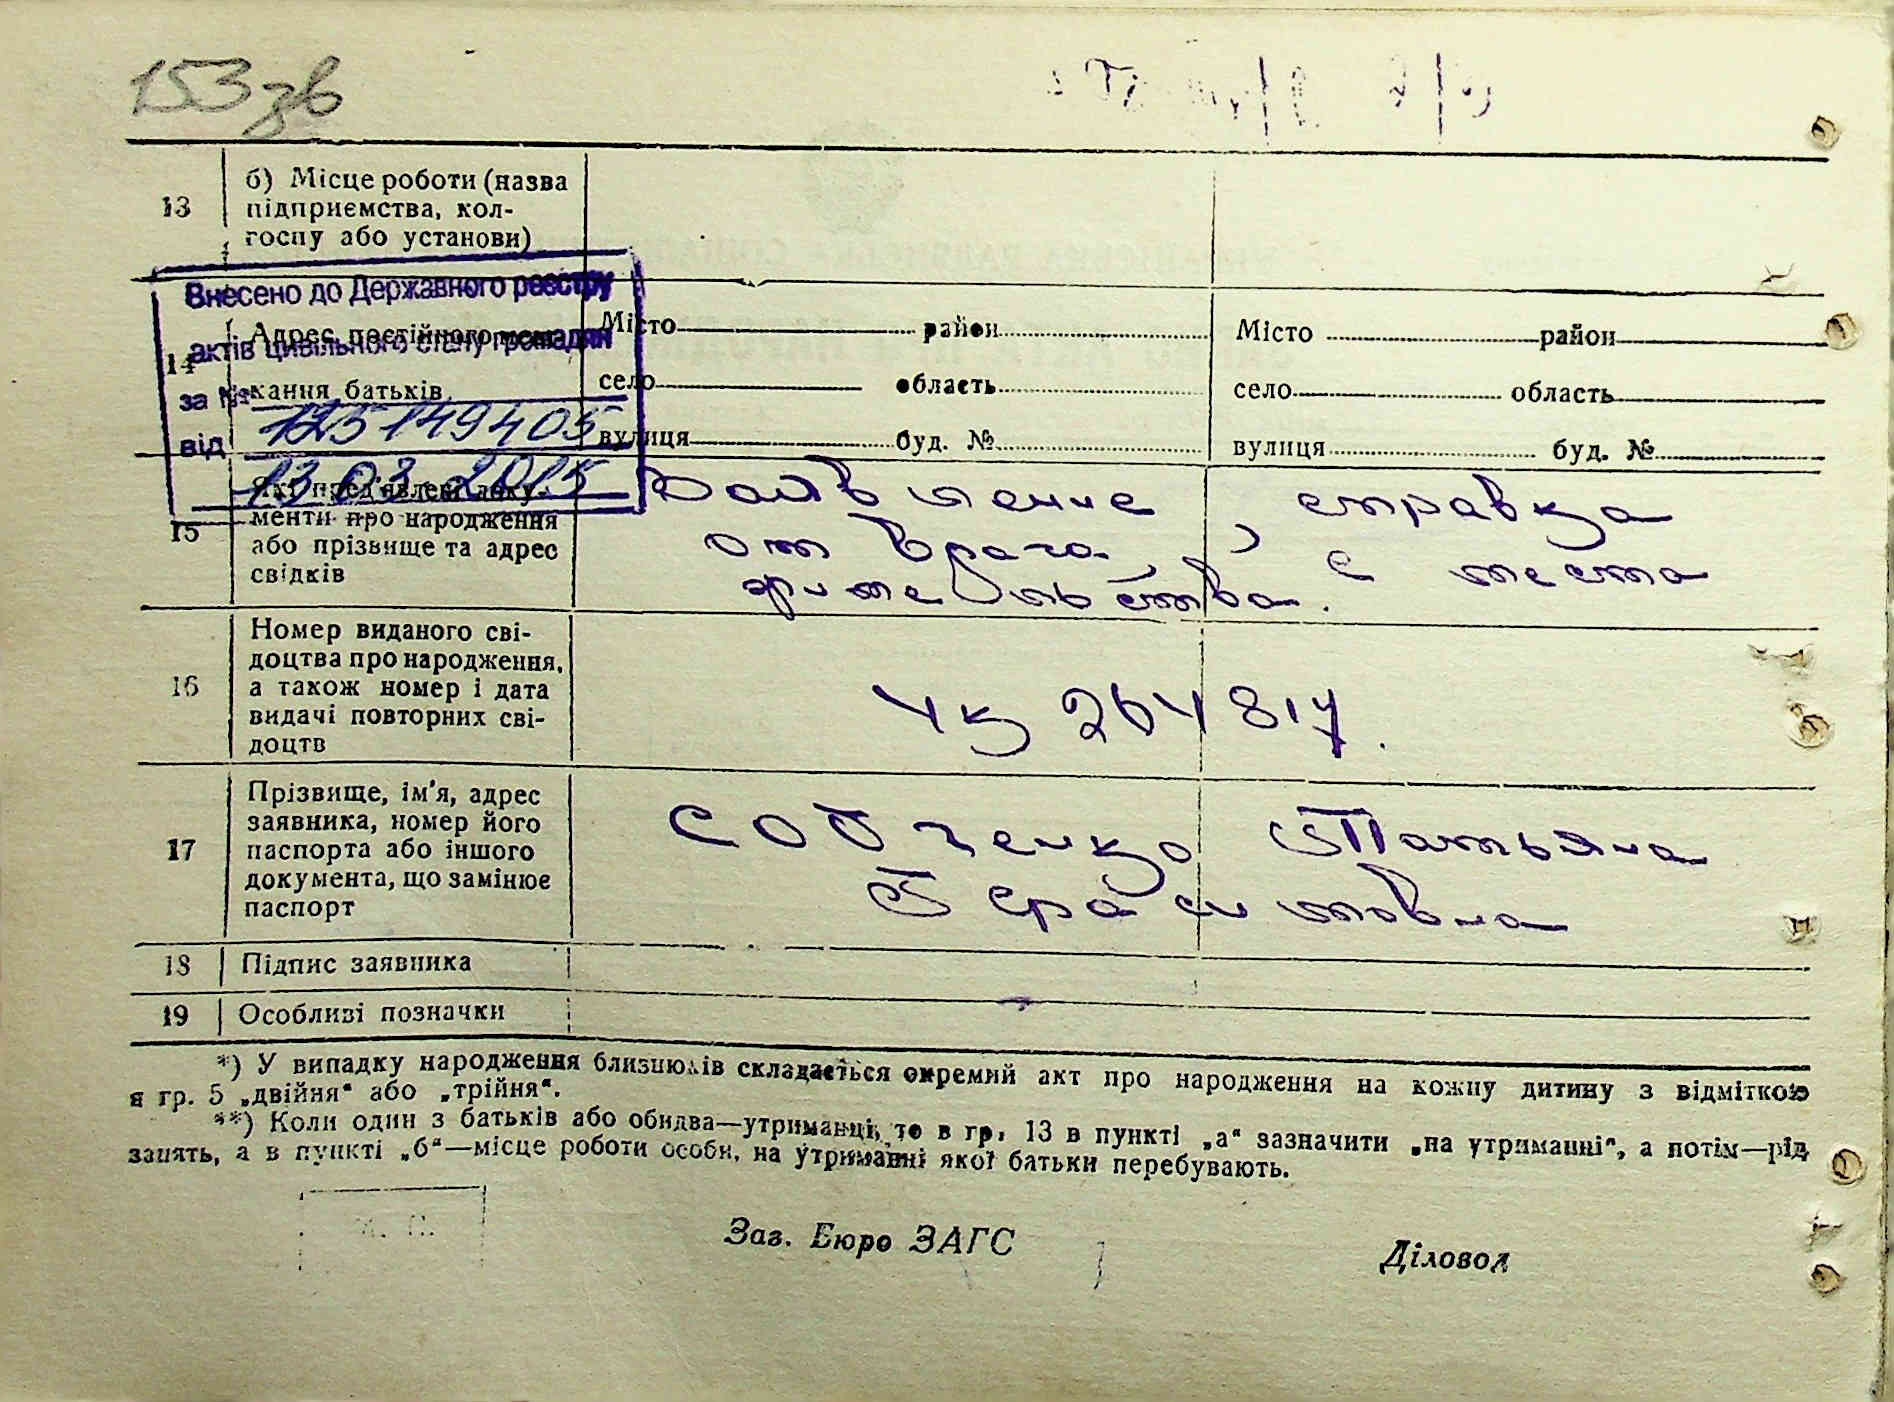 153 зв
13
б) Місце роботи (назва
підприємства, кол-
госпу або установи)
Внесено до Державного реєстру
актів цивільного стану громадян
за №
125149405
від
13.03.2015
14
Адрес постійного меш-
кання батьків
Місто район
село область
вулиця буд. №
Місто район
село область
вулиця буд. №
15
Які пред'явлені доку-
менти про народження
або прізвище та адрес
свідків
Заявление, справка
от врача, с места
жительства.
16
Номер виданого сві-
доцтва про народження,
а також номер і дата
видачі повторних сві-
доцтв
264817.
17
Прізвище, ім'я, адрес
заявника, номер його
паспорта або іншого
документа, що замінює
паспорт
Собченко Татьяна
Герасимовна
18 Підпис заявника
19 Особливі позначки
*) У випадку народження близнюків складається окремий акт про народження на кожну дитину з відміткою
в гр. 5 „двійня“ або „трійня“.
**) Коли один з батьків або обидва—утриманці, то в гр. 13 в пункті „а“ зазначити „на утриманні“, а потім—рід
занять, а в пункті „б“—місце роботи особи, на утриманні якої батьки перебувають.
М. П.
Зав. Бюро ЗАГС
Діловод